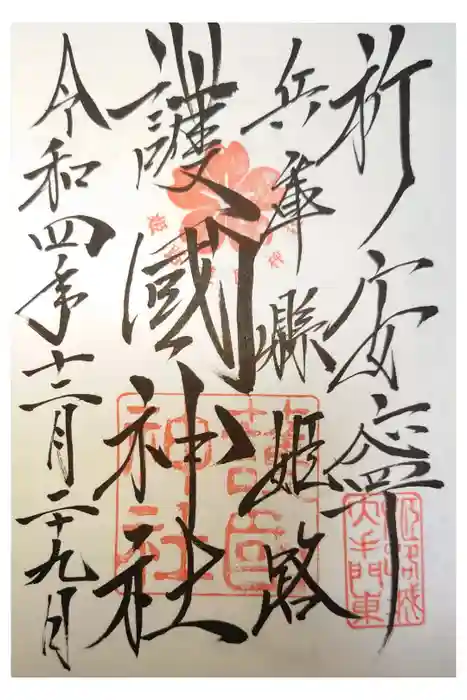 祈安寧
兵庫縣姫路
護國神社
令和四年十二月二十九月
護國神社
大手門東